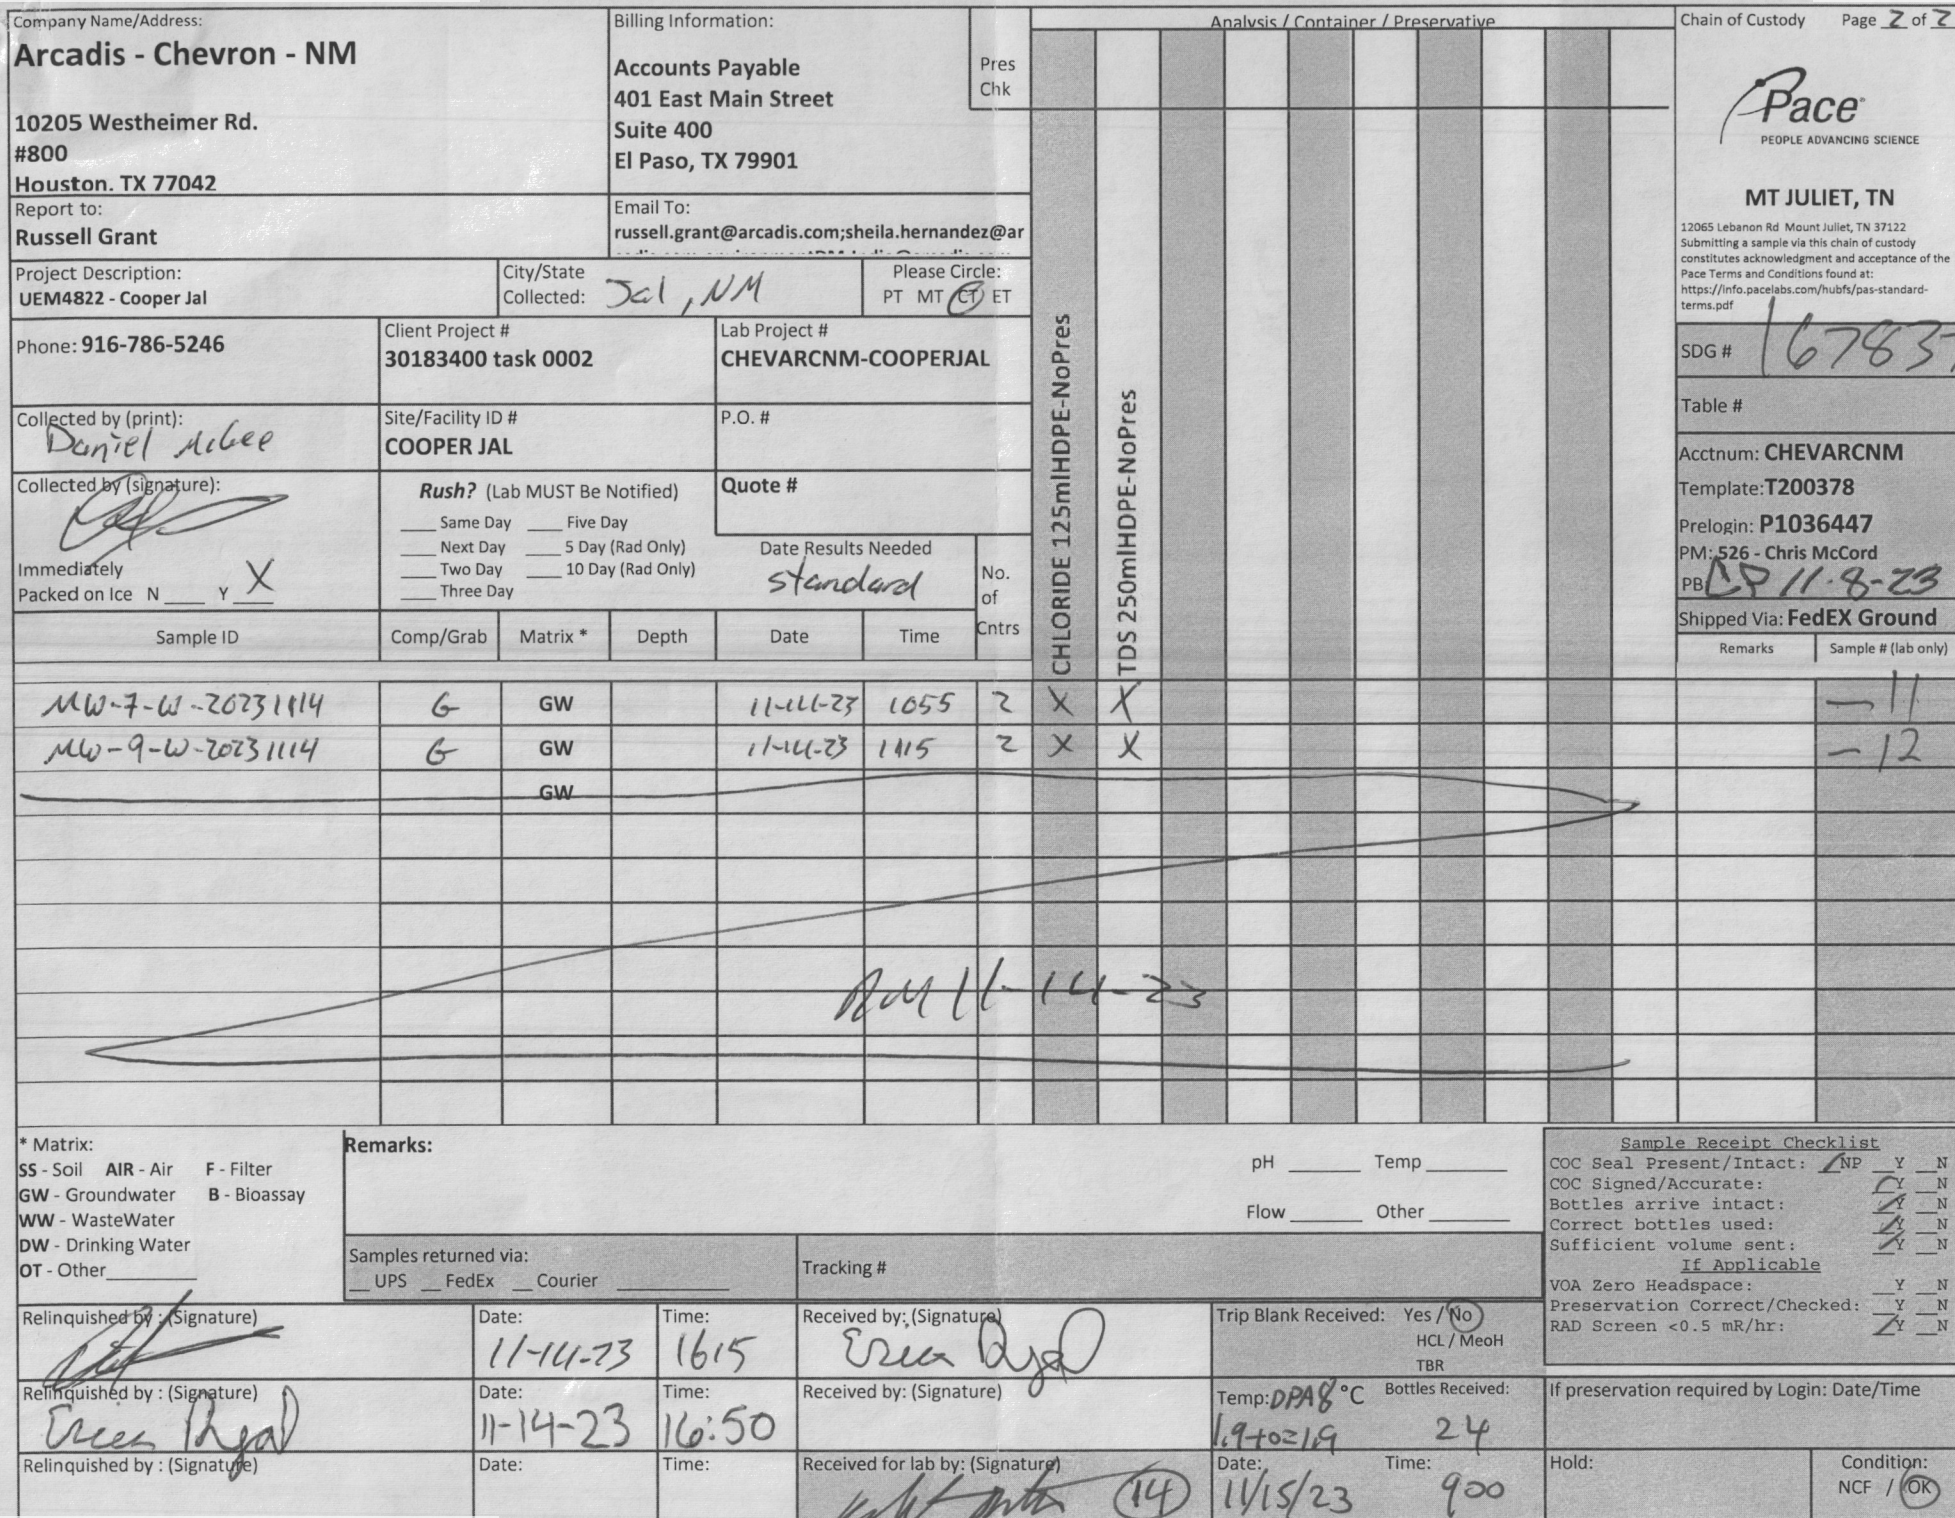 Company Name/Address:
Arcadis - Chevron - NM
10205 Westheimer Rd.
#800
Houston. TX 77042
Billing Information:
Accounts Payable
401 East Main Street
Suite 400
El Paso, TX 79901
Pres
Chk
Analysis / Container / Preservative
Chain of Custody Page 2 of 2
Pace
PEOPLE ADVANCING SCIENCE
MT JULIET, TN
12065 Lebanon Rd Mount Juliet, TN 37122
Submitting a sample via this chain of custody
constitutes acknowledgment and acceptance of the
Pace Terms and Conditions found at:
https://info.pacelabs.com/hubfs/pas-standard-
terms.pdf
Report to:
Russell Grant
Email To:
russell.grant@arcadis.com;sheila.hernandez@ar
Project Description:
UEM4822 - Cooper Jal
City/State
Collected: Jal, NM
Please Circle:
PT MT CT ET
Phone: 916-786-5246
Client Project #
30183400 task 0002
Lab Project #
CHEVARCNM-COOPERJAL
SDG #
Table #
Collected by (print):
Daniel McGee
Site/Facility ID #
COOPER JAL
P.O. #
Acctnum: CHEVARCNM
Template:T200378
Prelogin: P1036447
PM: 526 - Chris McCord
PB: 11-8-23
Shipped Via: FedEX Ground
Collected by (signature):
Immediately
Packed on Ice N ___ Y X
Rush? (Lab MUST Be Notified)
___ Same Day ___ Five Day
___ Next Day ___ 5 Day (Rad Only)
___ Two Day ___ 10 Day (Rad Only)
___ Three Day
Quote #
Date Results Needed
standard
No.
of
Cntrs
CHLORIDE 125mlHDPE-NoPres
TDS 250mlHDPE-NoPres
Sample ID Comp/Grab Matrix * Depth Date Time
Remarks Sample # (lab only)
MW-7-W-20231114 G GW 11-14-23 1055 2 X X -11
MW-9-W-20231114 G GW 11-14-23 1115 2 X X -12
GW
11-14-23
* Matrix:
SS - Soil AIR - Air F - Filter
GW - Groundwater B - Bioassay
WW - WasteWater
DW - Drinking Water
OT - Other
Remarks:
pH ___ Temp ___
Flow ___ Other ___
Samples returned via:
__ UPS __ FedEx __ Courier
Tracking #
Sample Receipt Checklist
COC Seal Present/Intact: __NP __Y __N
COC Signed/Accurate: __Y __N
Bottles arrive intact: __Y __N
Correct bottles used: __Y __N
Sufficient volume sent: __Y __N
If Applicable
VOA Zero Headspace: __Y __N
Preservation Correct/Checked: __Y __N
RAD Screen <0.5 mR/hr: __Y __N
Relinquished by : (Signature)
Date: 11-14-23
Time: 1615
Received by: (Signature)
Trip Blank Received: Yes / No
HCL / MeoH
TBR
Relinquished by : (Signature)
Date: 11-14-23
Time: 16:50
Received by: (Signature)
Temp: DPA8 °C
1.9+0=1.9
Bottles Received:
24
If preservation required by Login: Date/Time
Relinquished by : (Signature)
Date:
Time:
Received for lab by: (Signature)
14
Date: 11/15/23
Time: 900
Hold:
Condition:
NCF / OK